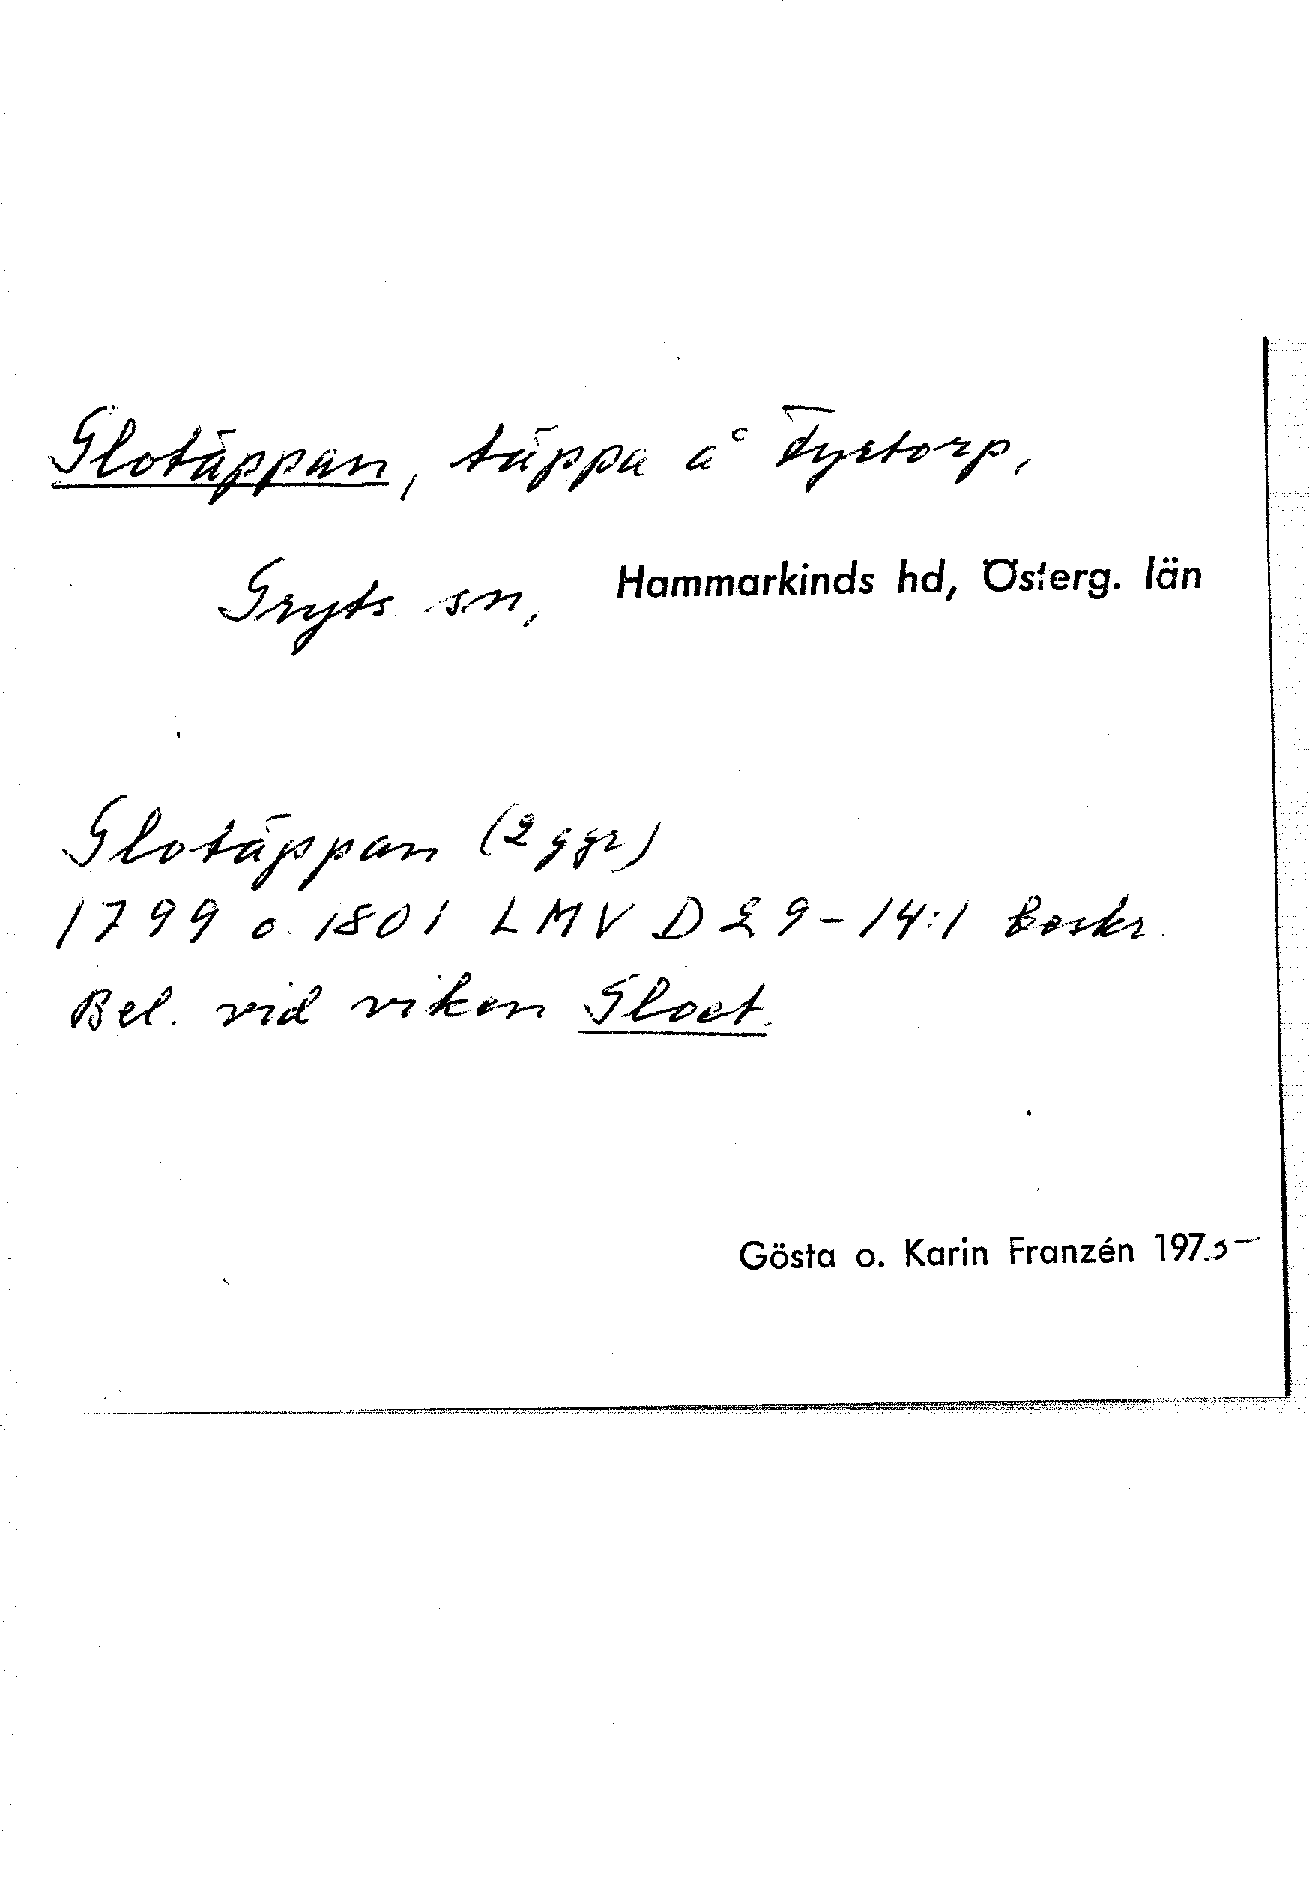 Glotäppan, täppa å Fyrtorp,
Gryts sn, Hammarkinds hd, Österg. län
Glotäppan (2 ggr)
1799 o. 1801 LMV D29-14:1 beskr.
Bel. vid viken Gloet.
Gösta o. Karin Franzén 1975